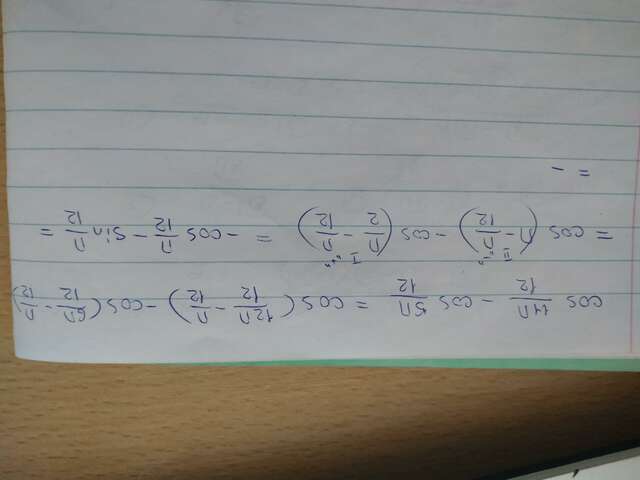 cos 11π/12 - cos 5π/12 = cos(12π/12 - π/12) - cos(6π/12 - π/12)
II "-" I "+"
= cos(π - π/12) - cos(π/2 - π/12) = - cos π/12 - sin π/12 =
= -